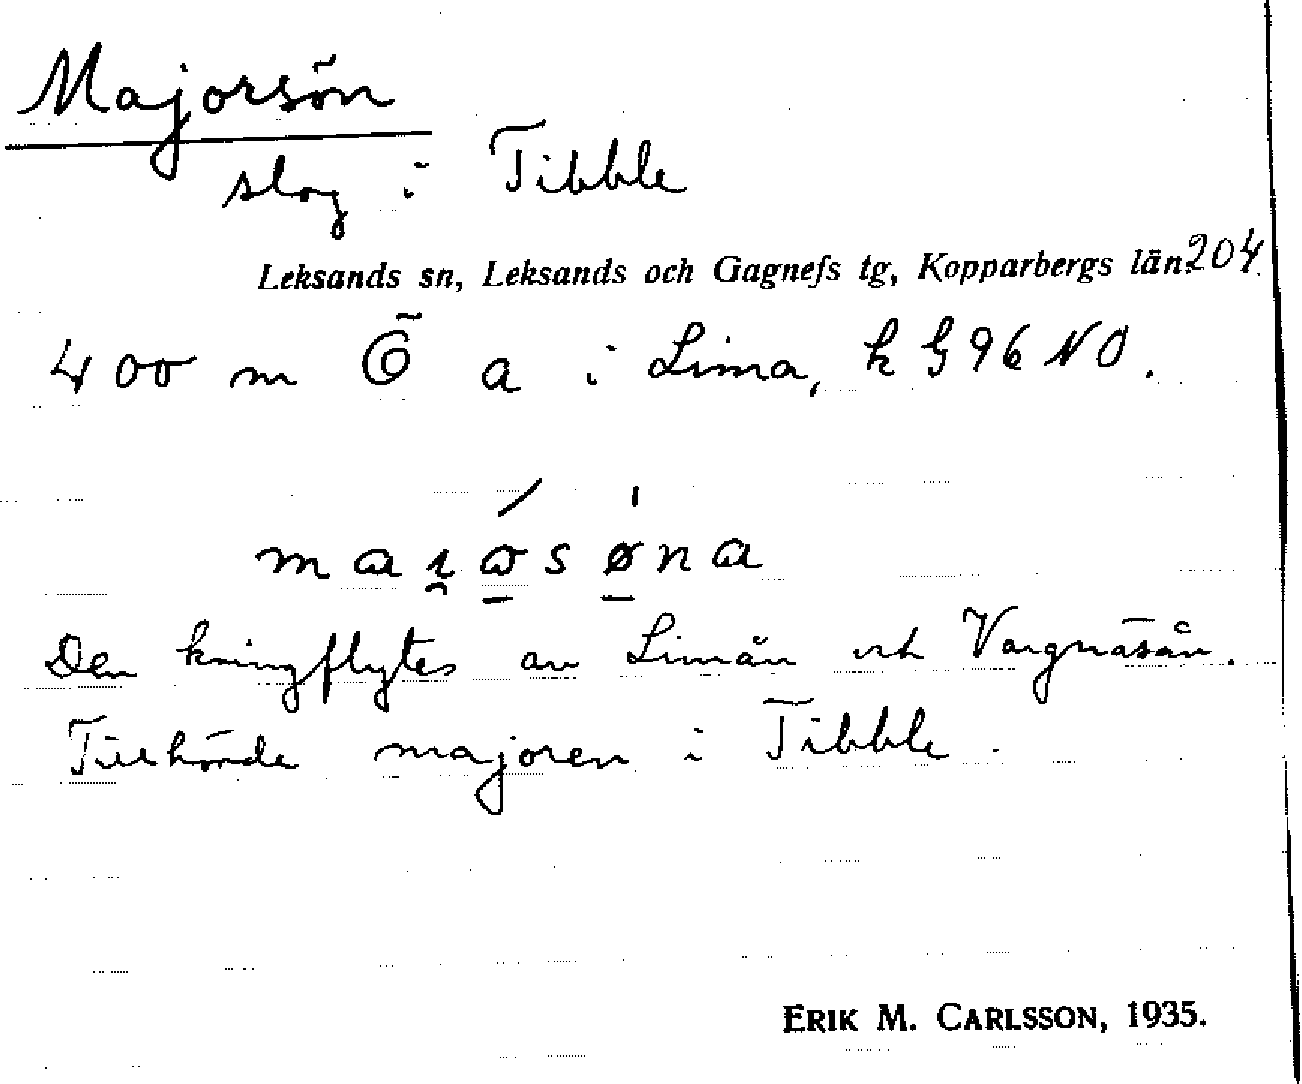 Majorsön
slog i Tibble
Leksands sn, Leksands och Gagnefs tg, Kopparbergs län. 204.
400 m Ö a i Lima, k G 96 NO.
maɪ̯ɷsøna
Den kringflytes av Limån och Vargnäsån.
Tillhörde majoren i Tibble.
ERIK M. CARLSSON, 1935.